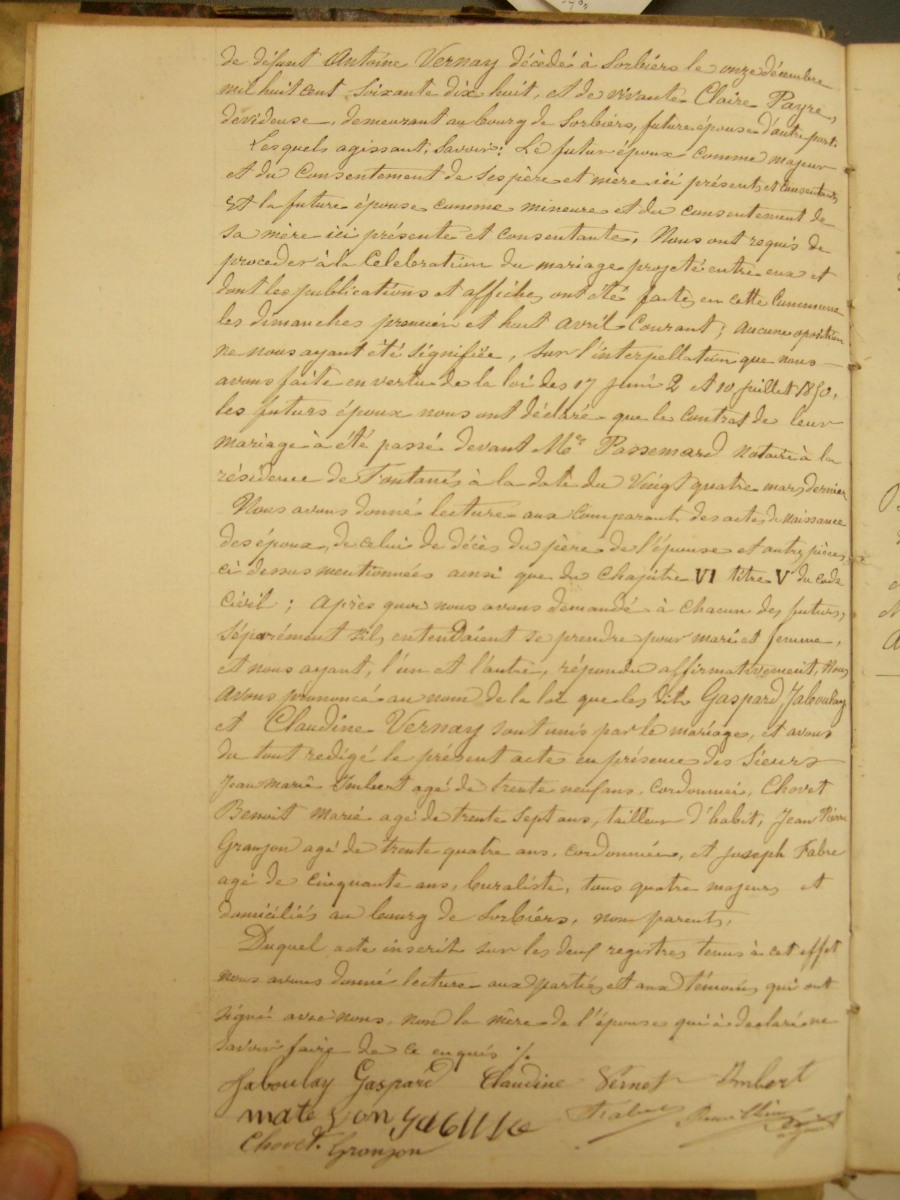 de défunt Antoine Vernay décèdé à Sorbiérs le onze décembre
mil huit cent soixante dix huit, et de vivante Claire Payre,
dévideuse, demeurant au bourg de Sorbiérs, future épouse d'autre part.
Lesquels agissant, Savoir: Le futur époux comme majeur
et du Consentement de ses père et mère ici présents et consentants
Et la future épouse comme mineure et du consentement de
sa mère ici présente et consentante, Nous ont requis de
proceder à la Célébration du mariage projeté entre eux et
dont les publications et affiches ont été faites en cette Commune
les dimanches premier et huit avril courant; aucune opposition
ne nous ayant été signifiée, sur l'interpellation que nous
avons faite en vertu de la loi des 17 juin 2 et 10 juillet 1850,
les futurs époux nous ont déclaré que le Contrat de leur
mariage à été passé devant Me Passemard Notaire à la
résidence de Fontanès à la date du Vingt quatre mars dernier
Nous avons donné lecture aux Comparants des actes de Naissance
des époux, de celui de décès du père de l'épouse et autres pièces
ci dessus mentionnées ainsi que du Chapître VI titre V du code
Civil; Après quoi nous avons demandé à chacun des futurs,
séparément s'ils entendaient se prendre pour mari et femme,
et nous ayant, l'un et l'autre, répondu affirmativement, Nous
Avons prononcé au nom de la loi que les dits Gaspard Jaboulay
et Claudine Vernay sont unis par le mariage, et avons
du tout redigé le présent acte en présence des Sieurs
Jean Marie Imbert agé de trente neuf ans, cordonnier, Chovet
Benoit Marie agé de trente Sept ans, tailleur d'habit, Jean Pierre
Granjon agé de trente quatre ans, cordonnier, et Joseph Fabre
agé de cinquante ans, buraliste, tous quatre majeurs et
domiciliés au bourg de Sorbiérs, non parents,
Duquel acte inscrit sur les deux registres tenus à cet effet
nous avons donné lecture aux parties et aux témoins qui ont
signé avec nous, non la mère de l'épouse qui à declaré ne
savoir faire de ce enquis ./.
Jaboulay Gaspard Claudine Vernet Imbert
Fabre
Chovet. Granjon